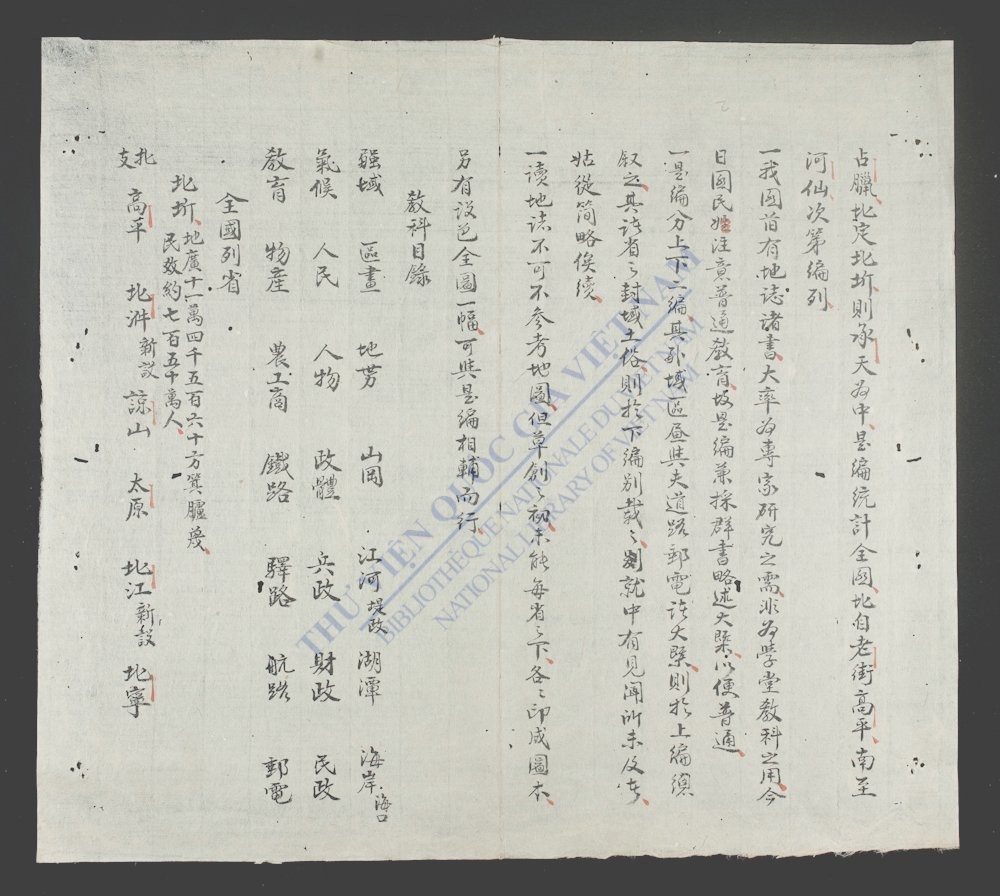 占臘、北定北圻、則承天為中、是編統計全國、北自老街高平、南至
河仙、次第編列、
一我國前有地誌諸書、大率為專家研究之需、非為學堂教科之用、今
日國民始注意普通教育、故是編兼採群書、略述大槩、以便普通、
一是編分上下二編、其外域區画與夫道路郵電諸大槩、則於上編總
叙之、其諸省之封域土俗、則於下編別載之、就中有見聞所未及者、
姑從簡略俟續、
一讀地誌不可不參考地圖、但草創之初、未能每省之下、各々印成圖本、
另有设色全圖一幅、可與是編相輔而行、
教科目錄
疆域 區畫 地势 山岡 江河 堤政 湖潭 海岸 海口
氣候 人民 人物 政體 兵政 財政 民政
教育 物産 農工商 鐵路 驛路 航路 郵電
全國列省
北圻、地廣十一萬四千五百六十方
民数約七百五十萬人、
高平 北泮 新設 諒山 太原 北江 新設 北寧
THƯ VIỆN QUỐC GIA VIỆT NAM
BIBLIOTHÈQUE NATIONALE DU VIETNAM
NATIONAL LIBRARY OF VIETNAM